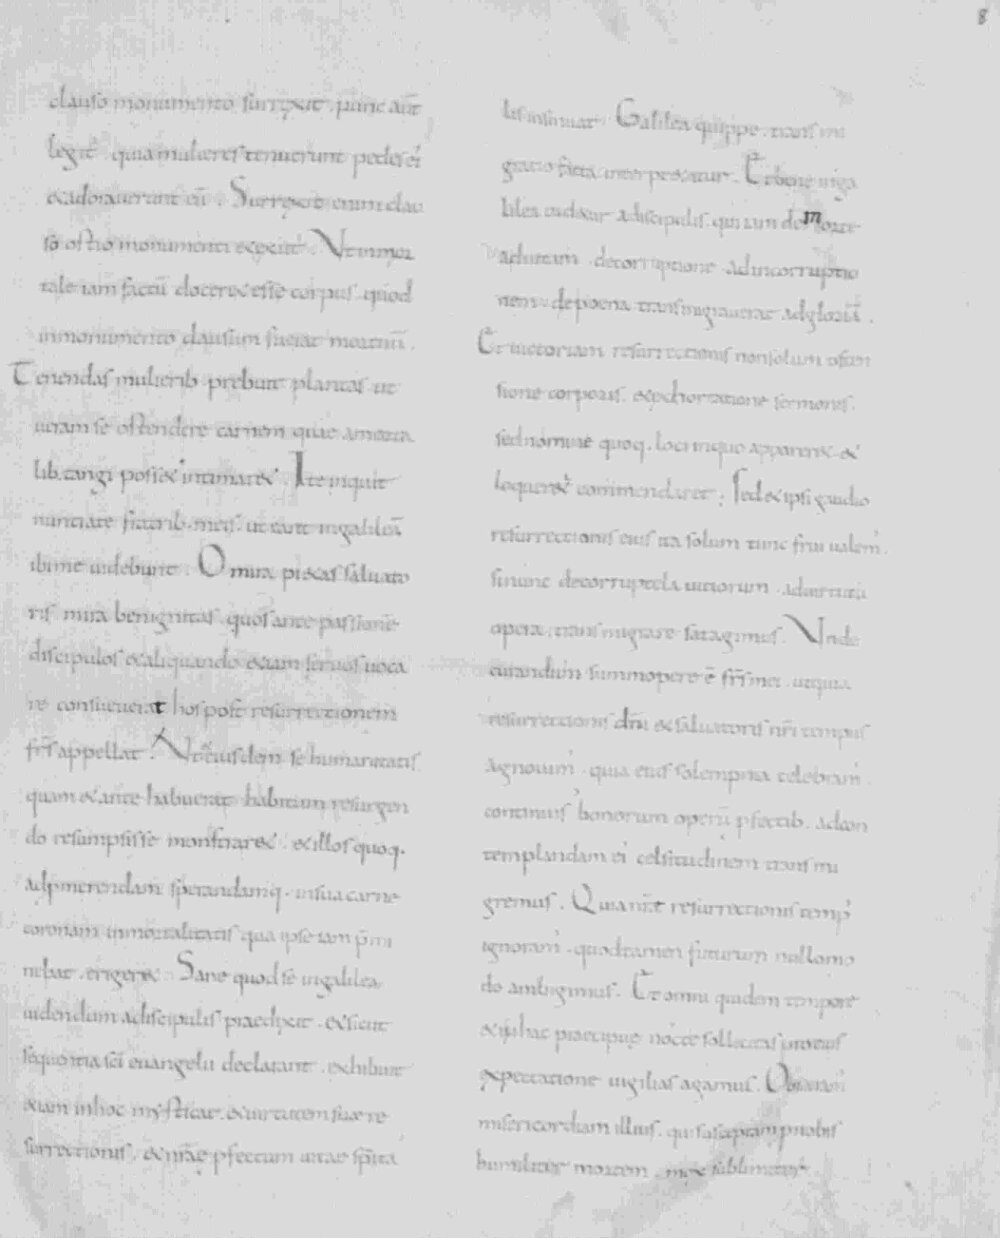 8
clauso monumento surrexit. nunc aut̄
legit̄. quia mulieres tenuerunt pedes ei'
& adorauerunt eū. Surrexit enim clau
so ostio monumenti & exiit. Ut inmor
tale iam factū docer& esse corpus. quod
inmonumento clausum fuerat mortuū.
Tenendas mulierib. prebuit plantas ut
ueram se ostendere carnem quae amorta
lib. tangi poss& intimar&. Ite inquit
nunciate fratrib. meis. ut eant ingalileā
ibi me uidebunt. O mira pi&as saluato
ris mira benignitas. quos ante passionē
discipulos & aliquando &iam seruos uoca
re consueuerat hos post resurrectionem
frs̄ appellat. Ut eiusdem se humanitatis
quam & ante habuerat habitum resurgen
do resumpsisse monstrar&. & illos quoq.
adpmerendam sperandamq. insua carne
coronam inmortalitatis qua ipse iam p̄mi
nebat. eriger&. Sane quod se ingalilea
uidendum adiscipulis praedixit. & sicut
sequentia sc̄i euangelii declarant. exhibuit
&iam inhoc mysticae. & uirtutem suae re
surrectionis. & nr̄ae pfectum uitae sp̄ita
lis insinuat. Galilea quippe. transmi
gratio facta interpr&atur. Et bene inga
lilea uid&ur adiscipulis. qui iam de morte
aduitam. decorruptione adincorruptio
nem. depoena transmigrauerat adgloriā.
Et uictoriam resurrectionis nonsolum osten
sione corporis. & exhortatione sermonis.
sed nomine quoq. loci inquo apparer& &
loquer&ur commendaret. Sed & ipsi gaudio
resurrectionis eius ita solum tunc frui ualem'.
sinunc decorruptela uitiorum. aduirtutū
opera. transmigrare satagimus. Unde
curandum summopere ē frs̄ mei. ut quia
resurrectionis dn̄i & saluatoris nr̄i tempus
agnouim'. quia eius solempnia celebram'.
continuis bonorum operū pfectib. adcon
templandam ei' celsitudinem transmi
gremus. Quia nr̄ae resurrectionis temp'
ignoram'. quod tamen futurum nullomo
do ambigimus. Et omni quidem tempore
& in hac praecipue nocte solliciti inei'
expectatione uigilias agamus. Obsecram'
misericordiam illius. qui susceptam p nobis
humiliter mortem. mox sublimiter